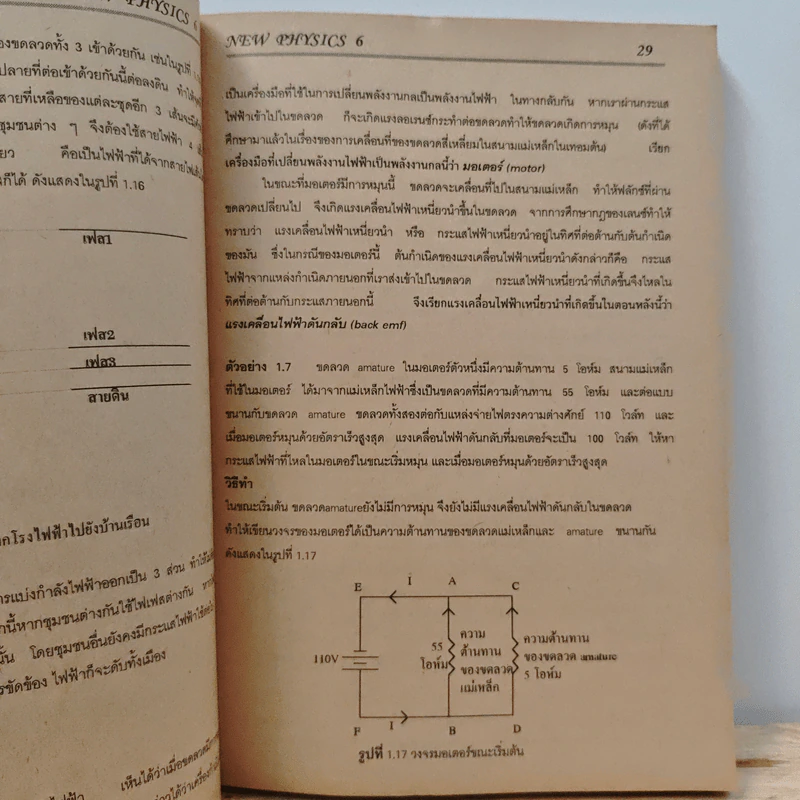 PHYSICS 6
องขดลวดทั้ง 3 เข้าด้วยกัน เช่นในรูปที่
ปลายที่ต่อเข้าด้วยกันนี้ต่อลงดิน
สายที่เหลือของแต่ละชุดอีก 3 เส้น
ชุมชนต่าง ๆ จึงต้องใช้สายไฟฟ้า 4
ยว คือเป็นไฟฟ้าที่ได้จากสายไฟ
นก็ได้ ดังแสดงในรูปที่ 1.16
เฟส1
เฟส2
เฟส3
สายดิน
กโรงไฟฟ้าไปยังบ้านเรือน
ารแบ่งกำลังไฟฟ้าออกเป็น 3 ส่วน
านี้หากชุมชนต่างกันใช้ไฟเฟสต่างกัน
นั้น โดยชุมชนอื่นยังคงมีกระแสไฟฟ้าใช้
รขัดข้อง ไฟฟ้าก็จะดับทั้งเมือง
เห็นได้ว่าเมื่อขดลวด
NEW PHYSICS 6
29
เป็นเครื่องมือที่ใช้ในการเปลี่ยนพลังงานกลเป็นพลังงานไฟฟ้า ในทางกลับกัน หากเราผ่านกระแส
ไฟฟ้าเข้าไปในขดลวด ก็จะเกิดแรงลอเรนซ์กระทำต่อขดลวดทำให้ขดลวดเกิดการหมุน (ดังที่ได้
ศึกษามาแล้วในเรื่องของการเคลื่อนที่ของขดลวดสี่เหลี่ยมในสนามแม่เหล็กในเทอมต้น) เรียก
เครื่องมือที่เปลี่ยนพลังงานไฟฟ้าเป็นพลังงานกลนี้ว่า มอเตอร์ (motor)
ในขณะที่มอเตอร์มีการหมุนนี้ ขดลวดจะเคลื่อนที่ไปในสนามแม่เหล็ก ทำให้ฟลักซ์ที่ผ่าน
ขดลวดเปลี่ยนไป จึงเกิดแรงเคลื่อนไฟฟ้าเหนี่ยวนำขึ้นในขดลวด จากการศึกษากฎของเลนซ์ทำให้
ทราบว่า แรงเคลื่อนไฟฟ้าเหนี่ยวนำ หรือ กระแสไฟฟ้าเหนี่ยวนำอยู่ในทิศที่ต่อต้านกับต้นกำเนิด
ของมัน ซึ่งในกรณีของมอเตอร์นี้ ต้นกำเนิดของแรงเคลื่อนไฟฟ้าเหนี่ยวนำดังกล่าวก็คือ กระแส
ไฟฟ้าจากแหล่งกำเนิดภายนอกที่เราส่งเข้าไปในขดลวด กระแสไฟฟ้าเหนี่ยวนำที่เกิดขึ้นจึงไหลใน
ทิศที่ต่อต้านกับกระแสภายนอกนี้ จึงเรียกแรงเคลื่อนไฟฟ้าเหนี่ยวนำที่เกิดขึ้นในตอนหลังนี้ว่า
แรงเคลื่อนไฟฟ้าดันกลับ (back emf)
ตัวอย่าง 1.7 ขดลวด amature ในมอเตอร์ตัวหนึ่งมีความต้านทาน 5 โอห์ม สนามแม่เหล็ก
ที่ใช้ในมอเตอร์ ได้มาจากแม่เหล็กไฟฟ้าซึ่งเป็นขดลวดที่มีความต้านทาน 55 โอห์ม และต่อแบบ
ขนานกับขดลวด amature ขดลวดทั้งสองต่อกับแหล่งจ่ายไฟตรงความต่างศักย์ 110 โวลัท และ
เมื่อมอเตอร์หมุนด้วยอัตราเร็วสูงสุด แรงเคลื่อนไฟฟ้าดันกลับที่มอเตอร์จะเป็น 100 โวลัท ให้หา
กระแสไฟฟ้าที่ไหลในมอเตอร์ในขณะเริ่มหมุน และเมื่อมอเตอร์หมุนด้วยอัตราเร็วสูงสุด
วิธีทำ
ในขณะเริ่มต้น ขดลวดamatureยังไม่มีการหมุน จึงยังไม่มีแรงเคลื่อนไฟฟ้าดันกลับในขดลวด
ทำให้เขียนวงจรของมอเตอร์ได้เป็นความต้านทานของขดลวดแม่เหล็กและ amature ขนานกัน
ดังแสดงในรูปที่ 1.17
E I A C
110V
55
โอห์ม
ความ
ต้านทาน
ของขดลวด
แม่เหล็ก
ความต้านทาน
ของขดลวด amature
5 โอห์ม
F I B D
รูปที่ 1.17 วงจรมอเตอร์ขณะเริ่มต้น